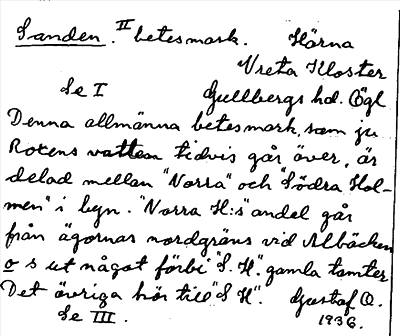 Sanden. II betesmark. Härna
Vreta Kloster
Se I Gullbergs hd. Ögl
Denna allmänna betesmark, som ju
Roxens vatten tidvis går över, är
delad mellan "Norra" och "Södra Hol-
men" i byn. "Norra H:s" andel går
från ägornas nordgräns vid Albäcken
o s ut något förbi "S. H". gamla tomter
Det övriga hör till "S H". Gustaf O.
Se III. 1936.